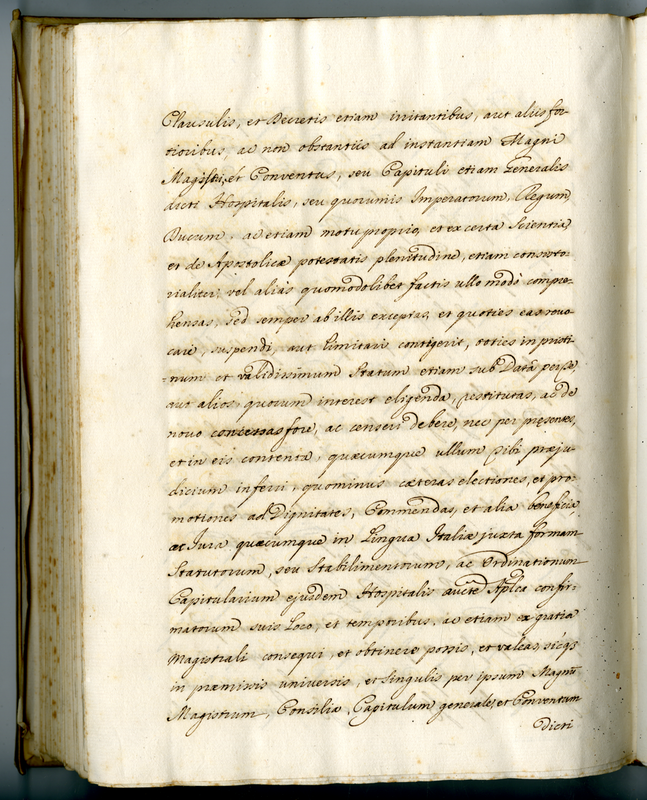 Clausulis, et Decretis etiam irritantibus, aut aliis for-
tioribus, ac non obstantiis ad instantiam Magni
Magistri, et Conventus, seu Capituli etiam Generalis
dicti Hospitalis, seu quorumis Imperatorum, Regum,
Ducum, ac etiam motu proprio, et ex certa scientia,
et de Apostolicæ potestatis plenitudine, etiam consisto-
rialiter, vel alias quomodolibet factis ullo modo compre-
hensas, sed semper ab illis exceptas, et quoties eas revo-
cari, suspendi, aut limitari contigerit, toties in pristi-
num et validissimum statum etiam sub Data per se,
aut alios, quorum interest eligenda, restitutas, ac de
novo concessas fore, ac censeri debere, nec per præsentes,
et in eis contenta, quæcumque ullum sibi præju-
dicium inferri, quominus cæteras electiones, et pro-
motiones ad Dignitates, Commendas, et alia beneficia
et Jura quæcumque in Lingua Italiæ juxta formam
Statutorum, seu Stabilimentorum, ac Ordinationum
Capitularium ejusdem Hospitalis aucte Aplca confir-
matorum suis Loco, et temporibus, ac etiam ex gratia
Magistrali consequi, et obtinere possis, et valeas, sicq3
in præmissis universis, et singulis per ipsum Magnū
Magistrum, Consilia, Capitulum generale, et Conventum
dicti